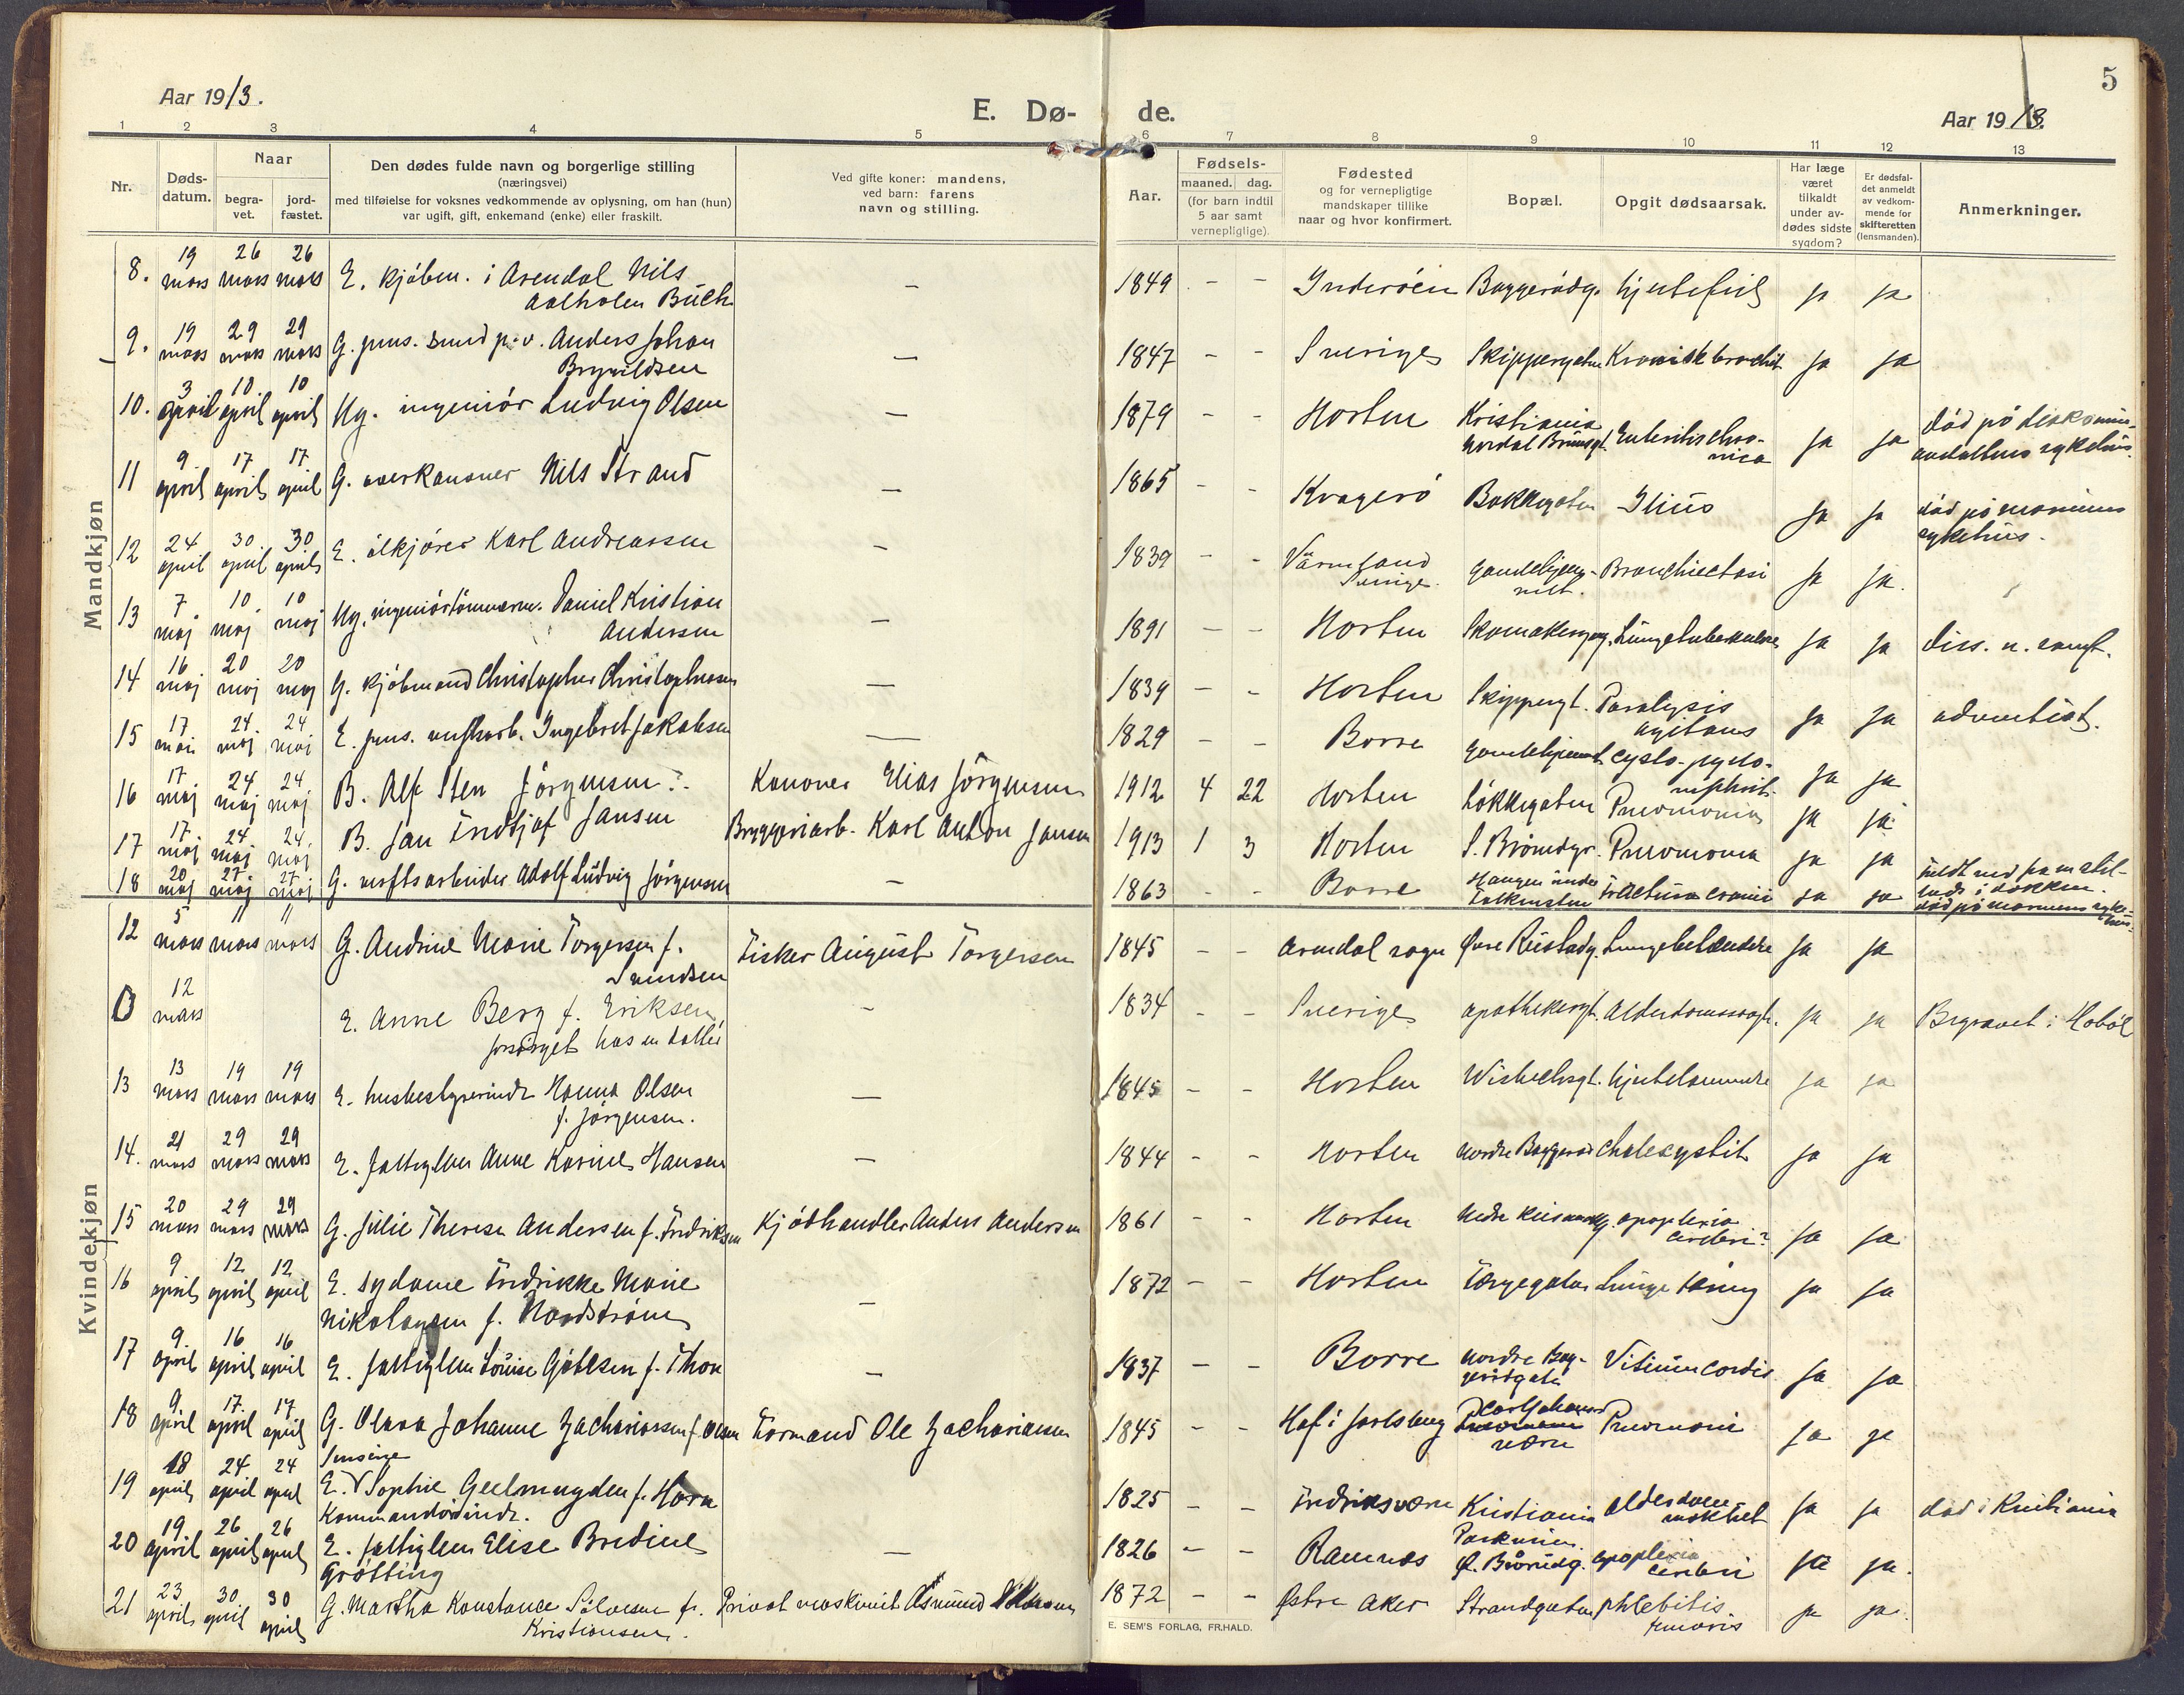 Aar 1913.
E. Dø- de.
Aar 1913.
5
1 2 3 4 5 6 7 8 9 10 11 12 13
Nr.
Døds-
datum.
Naar
begra-
vet.
jord-
fæstet.
Den dødes fulde navn og borgerlige stilling
(næringsvei)
med tilføielse for voksnes vedkommende av oplysning, om han (hun)
var ugift, gift, enkemand (enke) eller fraskilt.
Ved gifte koner: mandens,
ved barn: farens
navn og stilling.
Aar.
Fødsels-
maaned. dag.
(for barn indtil
5 aar samt
vernepligtige).
Fødested
og for vernepligtige
mandskaper tillike
naar og hvor konfirmert.
Bopæl.
Opgit dødsaarsak.
Har læge
været
tilkaldt
under av-
dødes sidste
sygdom?
Er dødsfal-
det anmeldt
av vedkom-
mende for
skifteretten
(lensmanden).
Anmerkninger.
Mandkjøn
8. 19 mars 26 mars 26 mars E. kjøbm. i Arendal Nils
Aalholm Buch — 1849 - - Inderöen Baggerødg. hjertefeil ja ja
9. 19 mars 29 mars 29 mars G. pens. smed p.v. Anders Johan
Brynildsen — 1847 - - Sverige Skippergaten Kronisk bronchit ja ja
10. 3 april 10 april 10 april Ug. ingeniör Ludvig Olsen — 1879 - - Horten Kristiania
Nordal Brunsgt. Enteritis chro-
nica ja ja död på diakonis-
anstaltens sykehus.
11 9 april 17 april 17 april G. overkanoner Nils Strand — 1865 - - Kragerö Bakkegaten Ilius ja ja död på marinens
sykehus.
12 24 april 30 april 30 april E. ölkjörer Karl Andreassen — 1839 - - Värmland
Sverige. Gamlehjem-
met. Bronchiectasi ja ja.
13 7 maj 10 maj 10 maj Ug. ingeniörtömmerm. Daniel Kristian
Andersen — 1891 - - Horten Skomakerg. Lungetuberkulose ja ja diss. u. samf.
14 16 maj 20 maj 20 maj G. kjöbmand Christopher Christophersen — 1839 - - Horten Skippergt. Paralysis
agitans ja ja adventist.
15 17 maj 24 maj 24 maj E. pens. verftsarb. Ingebret Jakobsen — 1829 - - Borre Gamlehjemmet cysto-pyelo-
nephrit. ja ja
16 17 maj 24 maj 24 maj B. Alf Sten Jörgensen Kanoner Elias Jörgensen 1912 4 22 Horten Løkkegaten Pneumonia ja ja
17 17 maj 24 maj 24 maj B. Jan Fredtjof Jansen Bryggeriarb. Karl Anton Jansen 1913 1 3 Horten S. Brårudgt. Pneumonia ja ja
18 20 maj 27 maj 27 maj G. verftsarbeider Adolf Ludvig Jörgensen — 1863 - - Borre Haugen under
Falkensten Fractura cranii ja ja faldt ned fra en stil-
lads i dokken.
död på marinens syke-
hus.
Kvindekjøn
12 5 mars 11 mars 11 mars G. Andrine Marie Torgersen f.
Svendsen Fisker August Torgersen 1845 - - Arendal sogn Øvre Keisadg. Lungebetændelse ja ja
0 12 mars E. Anne Berg f. Eriksen
forsörget hos en datter - 1834 - - Sverige Apothekergt. Alderdomssvagh. ja ja Begravet i Hobøl
13 13 mars 19 mars 19 mars E. husbestyrerinde Hanna Olsen
f. Jörgensen. — 1845 - - Horten Wistechsgt. hjertelammelse ja ja
14. 21 mars 29 mars 29 mars E. fattiglem Anne Karine Hansen — 1844 - - Horten Nordre Baggerød Cholecystit ja ja
15 20 mars 29 mars 29 mars G. Julie Therese Andersen f. Fredriksen Kjödhandler Anders Andersen 1861 - - Horten Nedre Keiserg. apoplexia
cerebri? ja ja
16 9 april 12 april 12 april E. sydame Fredrikke Marie
Nikolaysen f. Nordström — 1872 - - Horten Færgegaten Lungetæring ja ja
17 9. april 16 april 16 april E. fattiglem Louise Götesen f. Thon — 1837 - - Borre Nordre Bag-
gerødgate Vitium cordis ja ja
18 9. april 17. april 17 april G. Olava Johanne Zachariassen f. Olsen Formand Ole Zachariassen 1845 - - Hof i Jarlsberg Carl Johans
værn Pneumoni ja ja
19 18 april 24 april 24 april Jensine
E. Sophie Geelmuyden f. Horn
Kommandörinde. 1825 - - Fredriksværn Kristiania
Parkveien. alderdom
marasme ja ja död i Kristiania
20 19 april 26 april 26 april E. fattiglem Elise Bredine
Gröttting — 1826 - - Ramnes Ø. Brårudg. apoplexia
cerebri ja ja.
21 23 april 30 april 30 april G. Martha Konstance Sölvesen f.
Kristiansen. Privat maskinist Asmund 1872 - - Østre Aker Strandgaten phlebitis
femoris ja ja.
E. SEM'S FORLAG, FR.HALD.